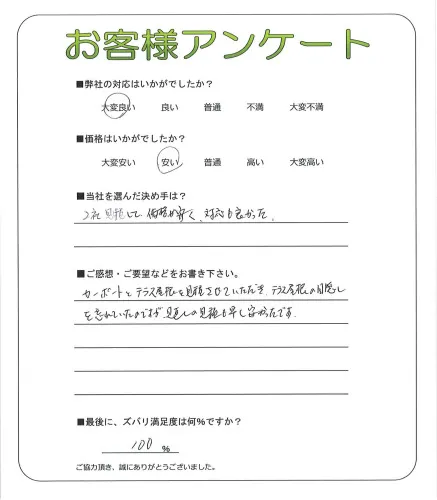 お客様アンケート
■弊社の対応はいかがでしたか?
大変良い 良い 普通 不満 大変不満
■価格はいかがでしたか?
大変安い 安い 普通 高い 大変高い
■当社を選んだ決め手は?
2社見積して、価格が安く、対応も良かった。
■ご感想・ご要望などをお書き下さい。
カーポートとテラス屋根を見積させていただき、テラス屋根の目隠し
を忘れていたのですが 見直しの見積も早く良かったです。
■最後に、ズバリ満足度は何%ですか?
100 %
ご協力頂き、誠にありがとうございました。